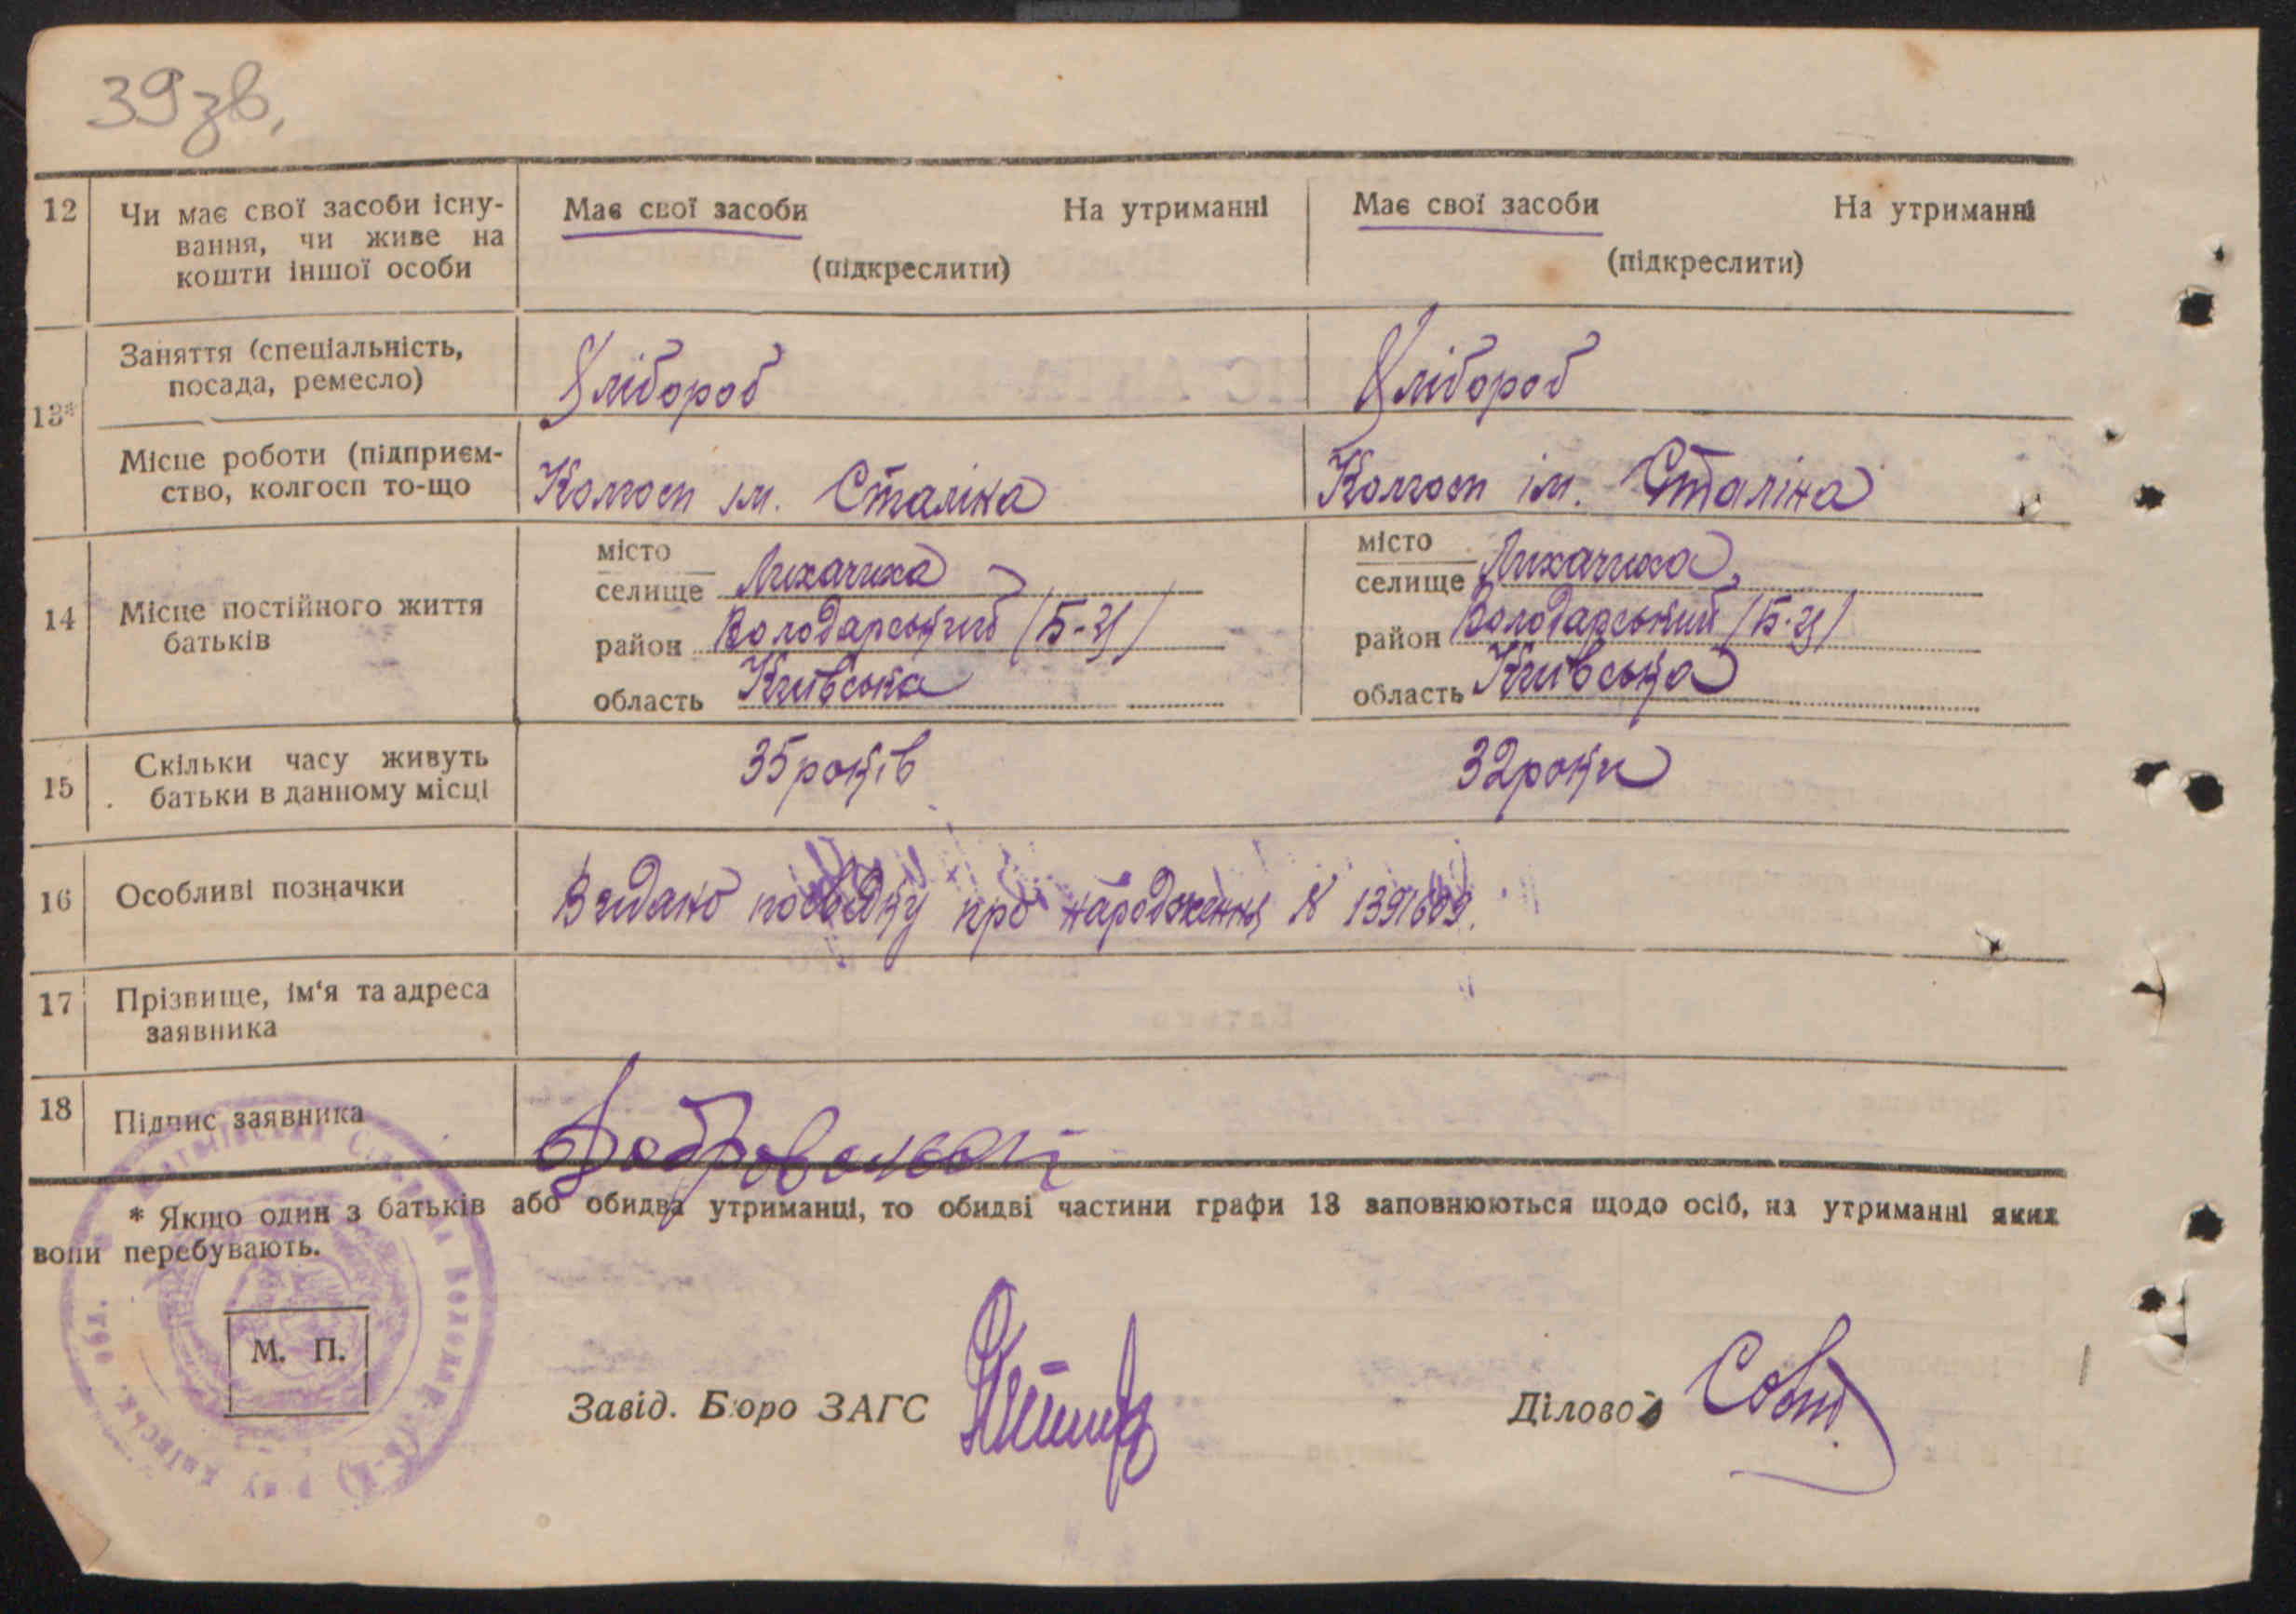 39зв.
12 Чи має свої засоби існу- Має свої засоби На утриманні Має свої засоби На утриманні
вання, чи живе на
кошти іншої особи (підкреслити) (підкреслити)
Заняття (спеціальність,
посада, ремесло) Хлібороб Хлібороб
13*
Місце роботи (підприєм-
ство, колгосп то-що Колгосп ім. Сталіна Колгосп ім. Сталіна
14 Місце постійного життя
батьків
місто
селище Лихачиха
район Володарський (Б-Ц)
область Київська
місто
селище Лихачиха,
район Володарський (Б-Ц)
область Київська
15 Скільки часу живуть
батьки в данному місці 35 років 32 роки
16 Особливі позначки Видано посвідку про народження № 1391609.
17 Прізвище, ім'я та адреса
заявника
18 Підпис заявника
* Якщо один з батьків або обидва утриманці, то обидві частини графи 13 заповнюються щодо осіб, на утриманні яких
вони перебувають.
М. П.
Завід. Бюро ЗАГС Діловод